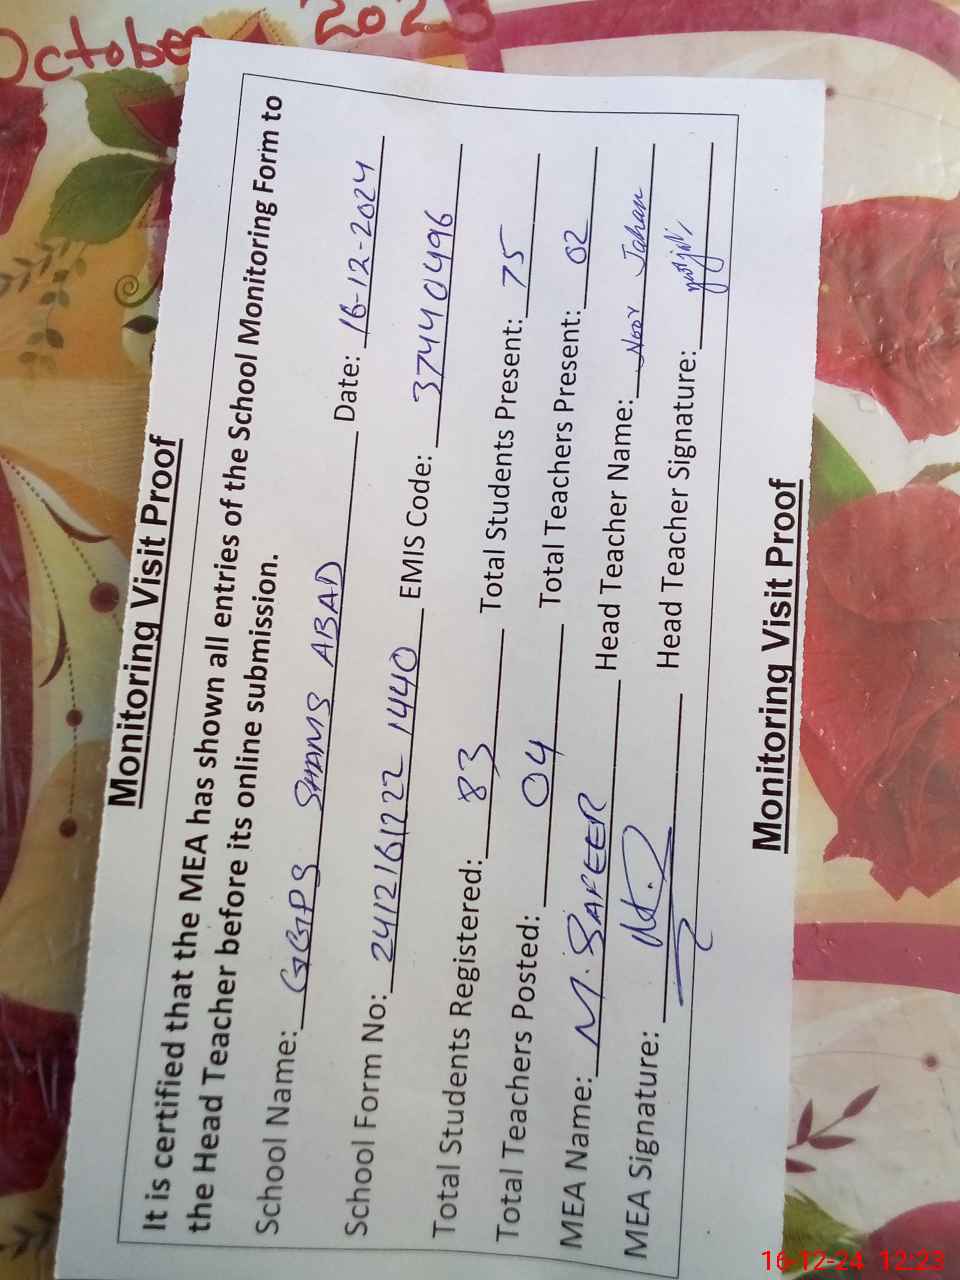 October 2023
Monitoring Visit Proof
It is certified that the MEA has shown all entries of the School Monitoring Form to
the Head Teacher before its online submission.
School Name: GGPS SHAMS ABAD Date: 16-12-2024
School Form No: 24121612221440 EMIS Code: 37440496
Total Students Registered: 83 Total Students Present: 75
Total Teachers Posted: 04 Total Teachers Present: 02
MEA Name: M. SAFEER Head Teacher Name: Noor Jahan
MEA Signature: Head Teacher Signature:
Monitoring Visit Proof
16-12-24 12:23